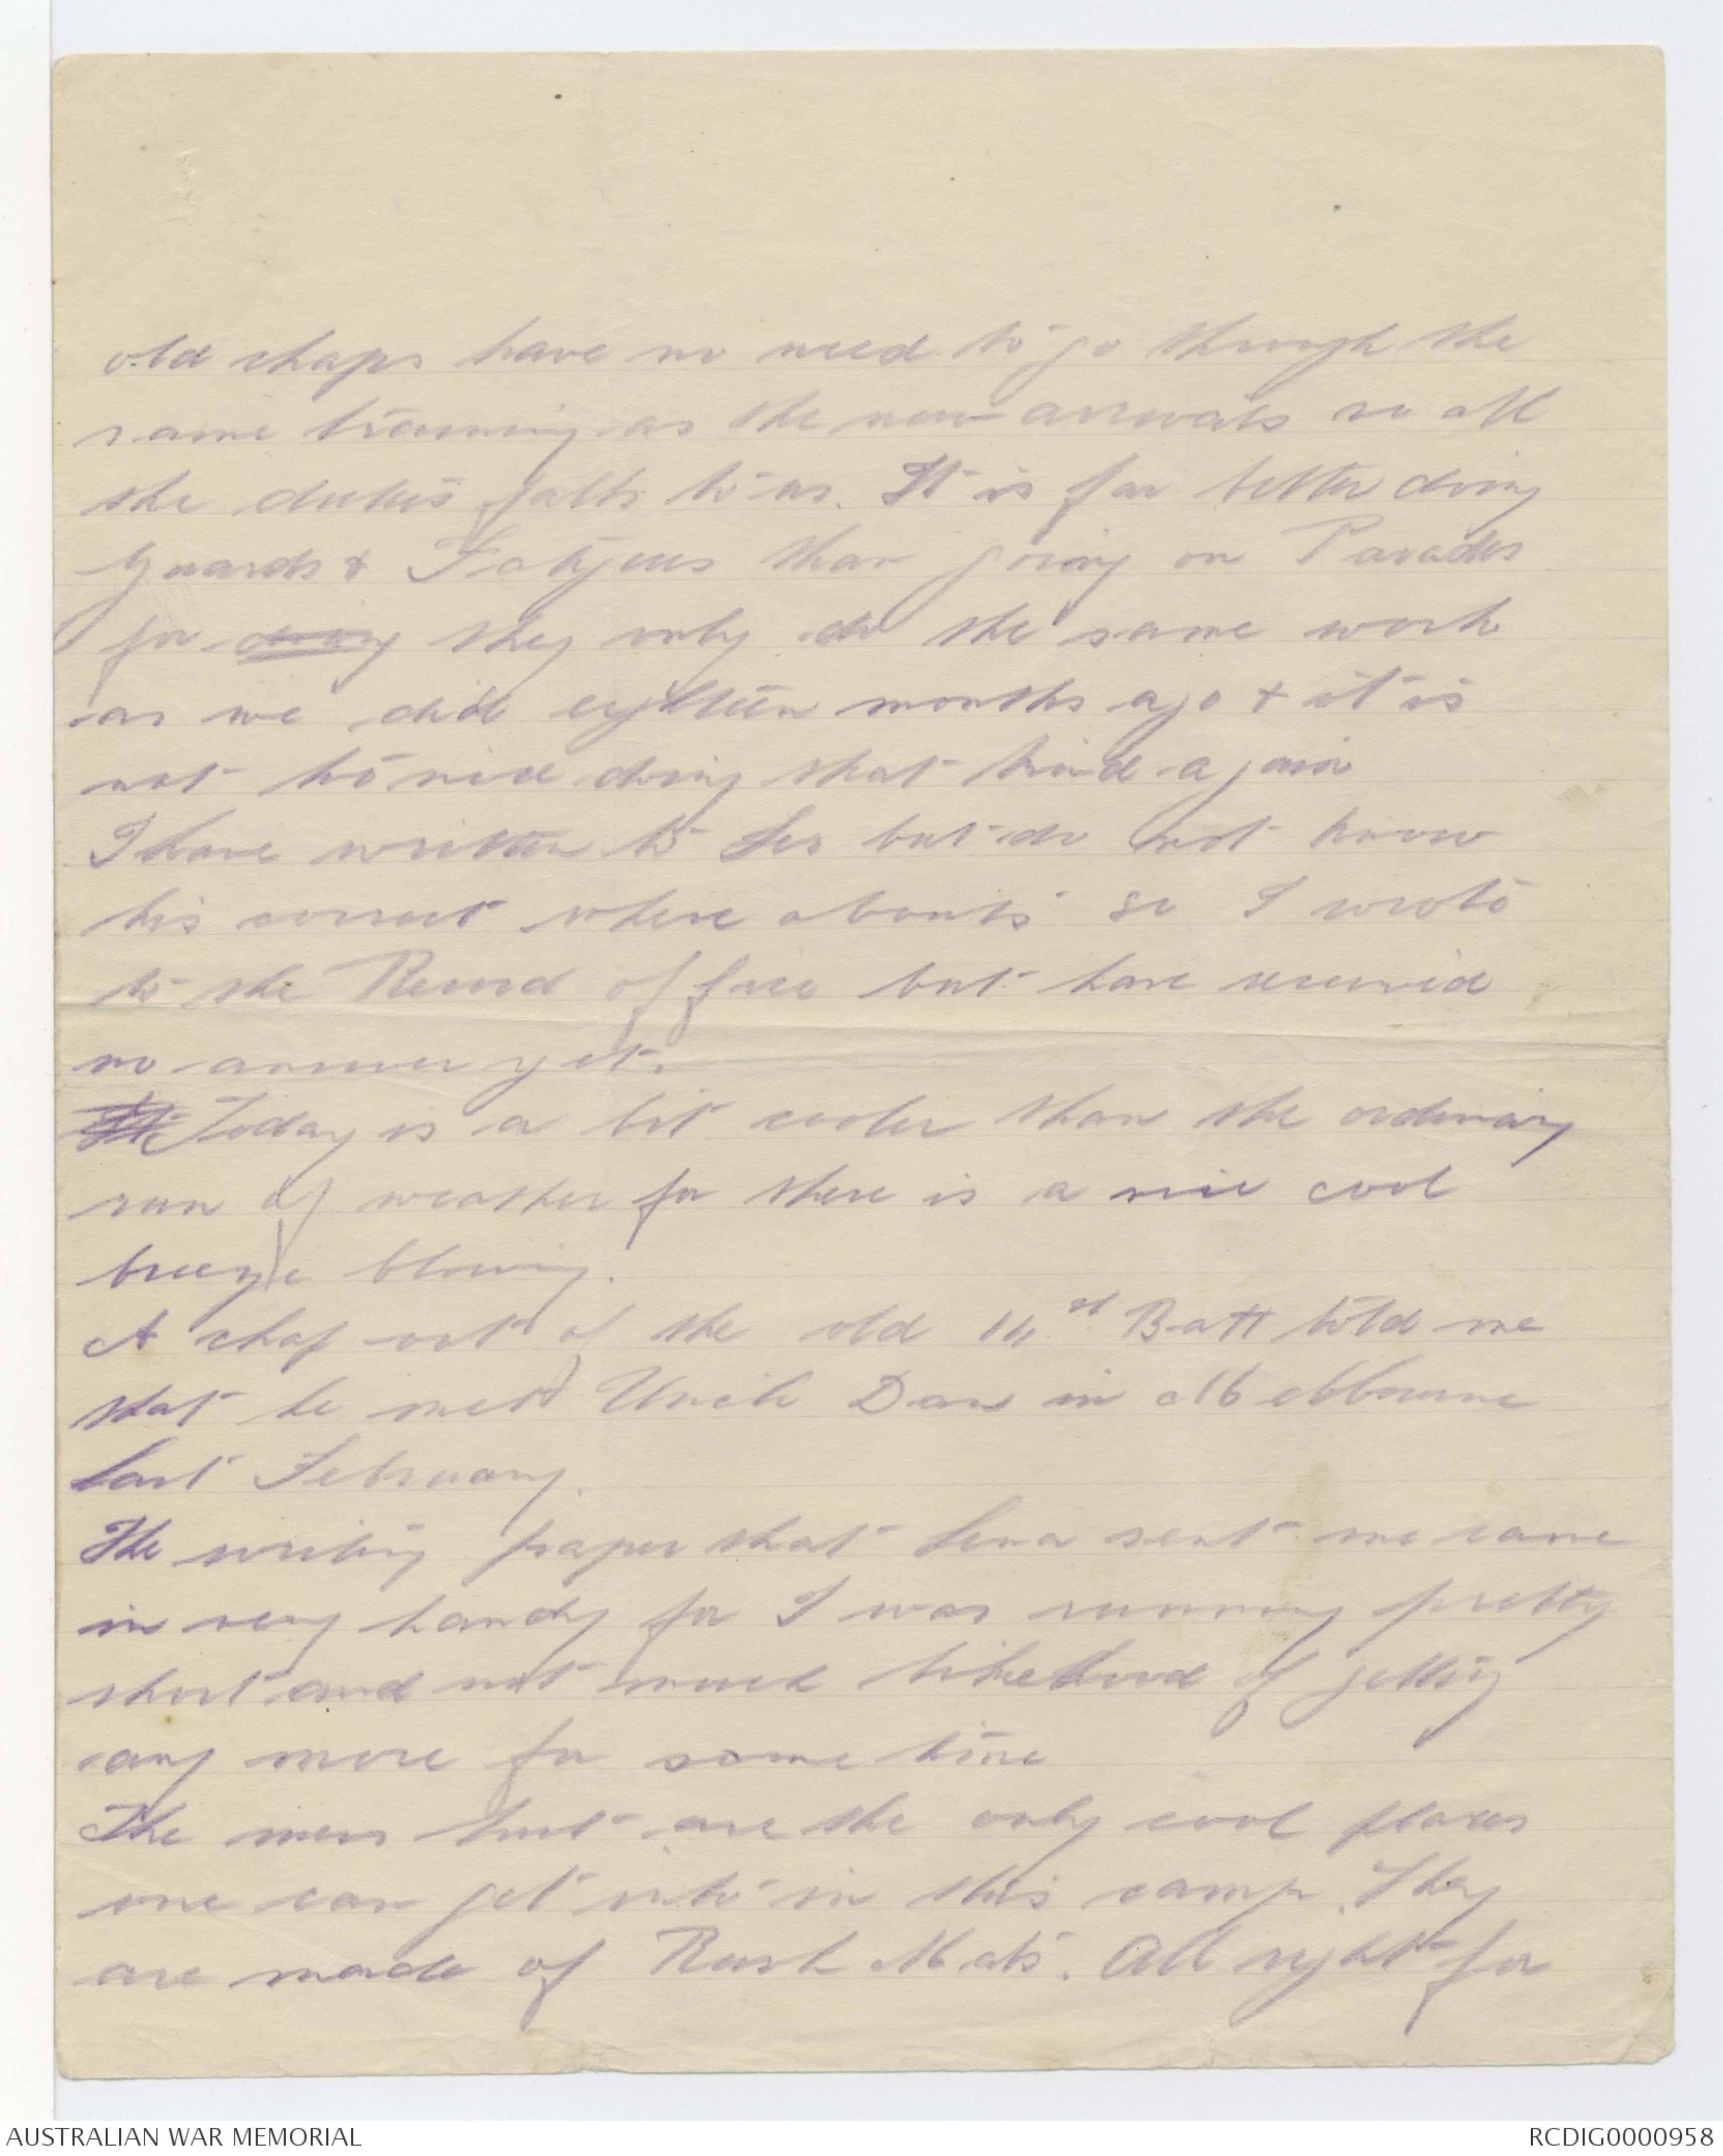 old chaps have no need to go through the
same training as the new arrivals so all
the duties falls to us. It is far better doing
Guards & Fatigues than going on Parades
for doing they only do the same work
as we did eighteen months ago & it is
not to nice doing that kind again
I have written to Les but do not know
his correct where abouts so I wrote
to the Record office but have received
no answer yet.
Today is a bit cooler than the ordinary
run of weather for there is a nice cool
breeze blowing.
A chap out of the old 14st Batt told me
that he met Uncle Dan in Melbourne
last February.
The writing paper that Lena sent me came
in very handy for I was running pretty
short and not much likelihood of getting
any more for some time
The mess hut are the only cool places
one can get into in this camp. They
are made of Rush Mats. All right for
AUSTRALIAN WAR MEMORIAL
RCDIG0000958